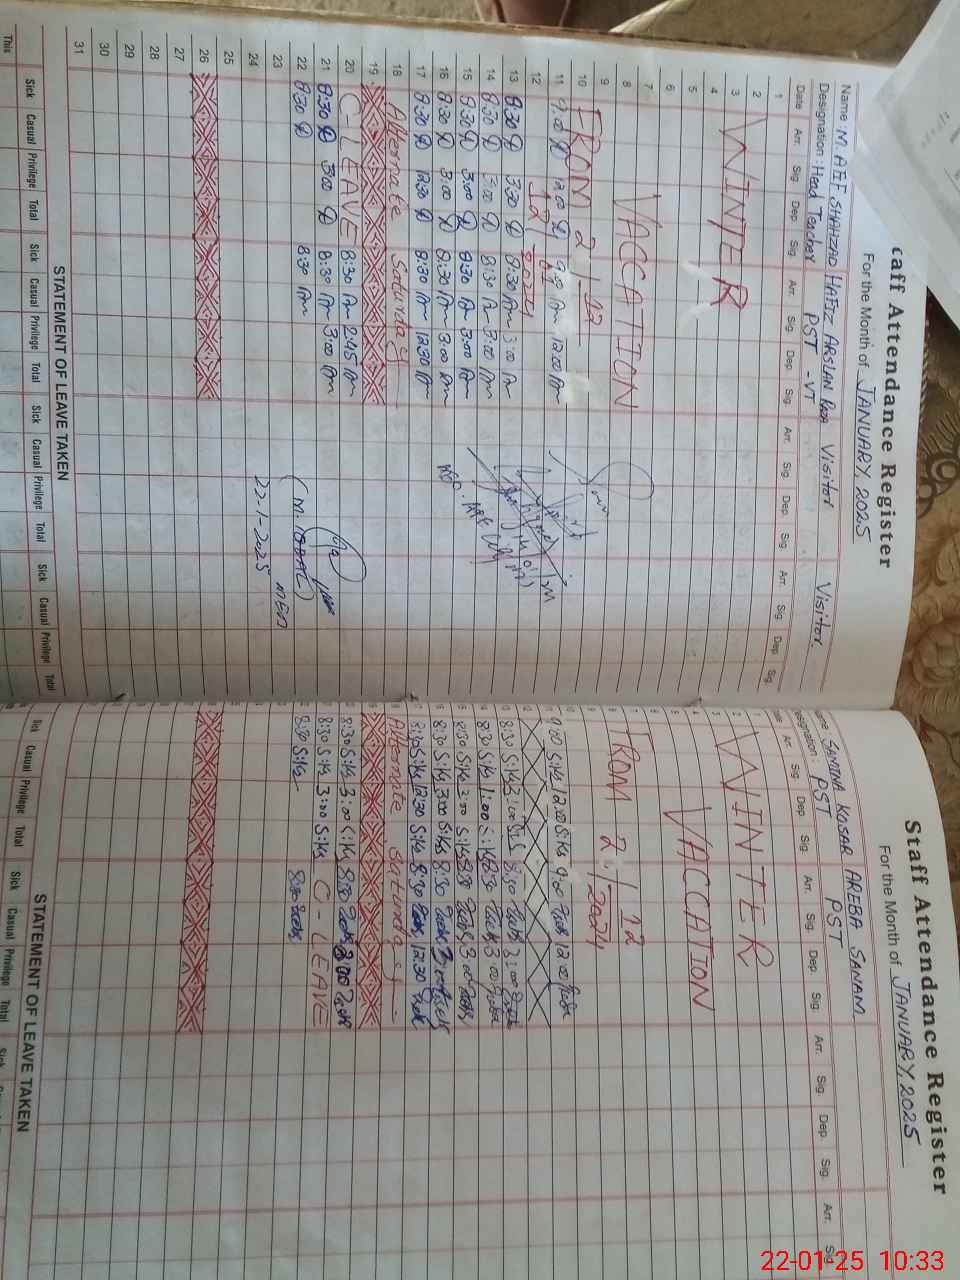 Staff Attendance Register
For the Month of JANUARY, 2025
Name : M. ATIF SHAHZAD HAFIZ ARSLAN RAZA Visitor Visitor.
Designation : Head Teacher PST - VT
Date Arr. Sig. Dep. Sig. Arr. Sig. Dep. Sig. Arr. Sig. Dep. Sig. Arr. Sig. Dep. Sig.
1
2
3 WINTER
4
5
6
7
8 VACCATION
9
10 FROM 2 / 12
11 9:00 12:00 9:00 12:00
12 12 2024
13 8:30 3:30 8:30 3:00
14 8:30 3:00 8:30 3:00
15 8:30 3:00 8:30 3:00
16 8:30 3:00 8:30 3:00
17 8:30 12:30 8:30 12:30
18 Alternate Saturday
19
20 C-LEAVE 8:30 2:45
21 8:30 3:00 8:30 3:00
22 8:30 8:30
23
24
25
26
27
28
29
30
31
(M. IQBAL) MEA
22-1-2025
STATEMENT OF LEAVE TAKEN
Sick Casual Privilege Total Sick Casual Privilege Total Sick Casual Privilege Total Sick Casual Privilege Total
This
Staff Attendance Register
For the Month of JANUARY, 2025
SAMINA KOSAR AREBA SANAM
Designation : PST PST
Arr. Sig. Dep. Sig. Arr. Sig. Dep. Sig. Arr. Sig. Dep. Sig. Arr. Sig.
WINTER
VACCATION
FROM 2 / 12
/2024
9:00 S:Ks 12:00 S:Ks 9:00 12:00
8:30 S:Ks 3:00 8:30 3:00
8:30 S:Ks 1:00 S:Ks 8:30 3:00
8:30 S:Ks 3:00 S:Ks 8:30 3:00
8:30 S:Ks 3:00 S:Ks 8:30 3:00
8:30 S:Ks 12:30 S:Ks 8:30 12:30
Alternate Saturday -
8:30 S:Ks 3:00 S:Ks 8:30 3:00
8:30 S:Ks 3:00 S:Ks C-LEAVE
8:30 S:Ks 8:30
STATEMENT OF LEAVE TAKEN
Sick Casual Privilege Total Sick Casual Privilege Total Sick
22-01-25 10:33